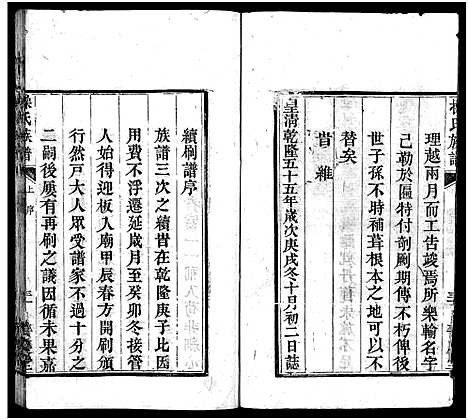 理越兩月而工告竣焉所樂輸名字
己勒於區特付剞劂期傳不朽俾後
世子孫不時補葺根本之地以
替矣
旹維
皇清乾隆五十五年歲次庚戌冬十月初二日誌
續刷譜序
族譜三次之續昔在乾隆庚子比因
年歲不浮遷延歲月至癸卯冬接管
人始得迎板入廟甲辰春方開刷頒
行然戸大人眾受譜家不過十分之
二嗣後屢有再刷之議因循未果嘉
氏族譜
上序